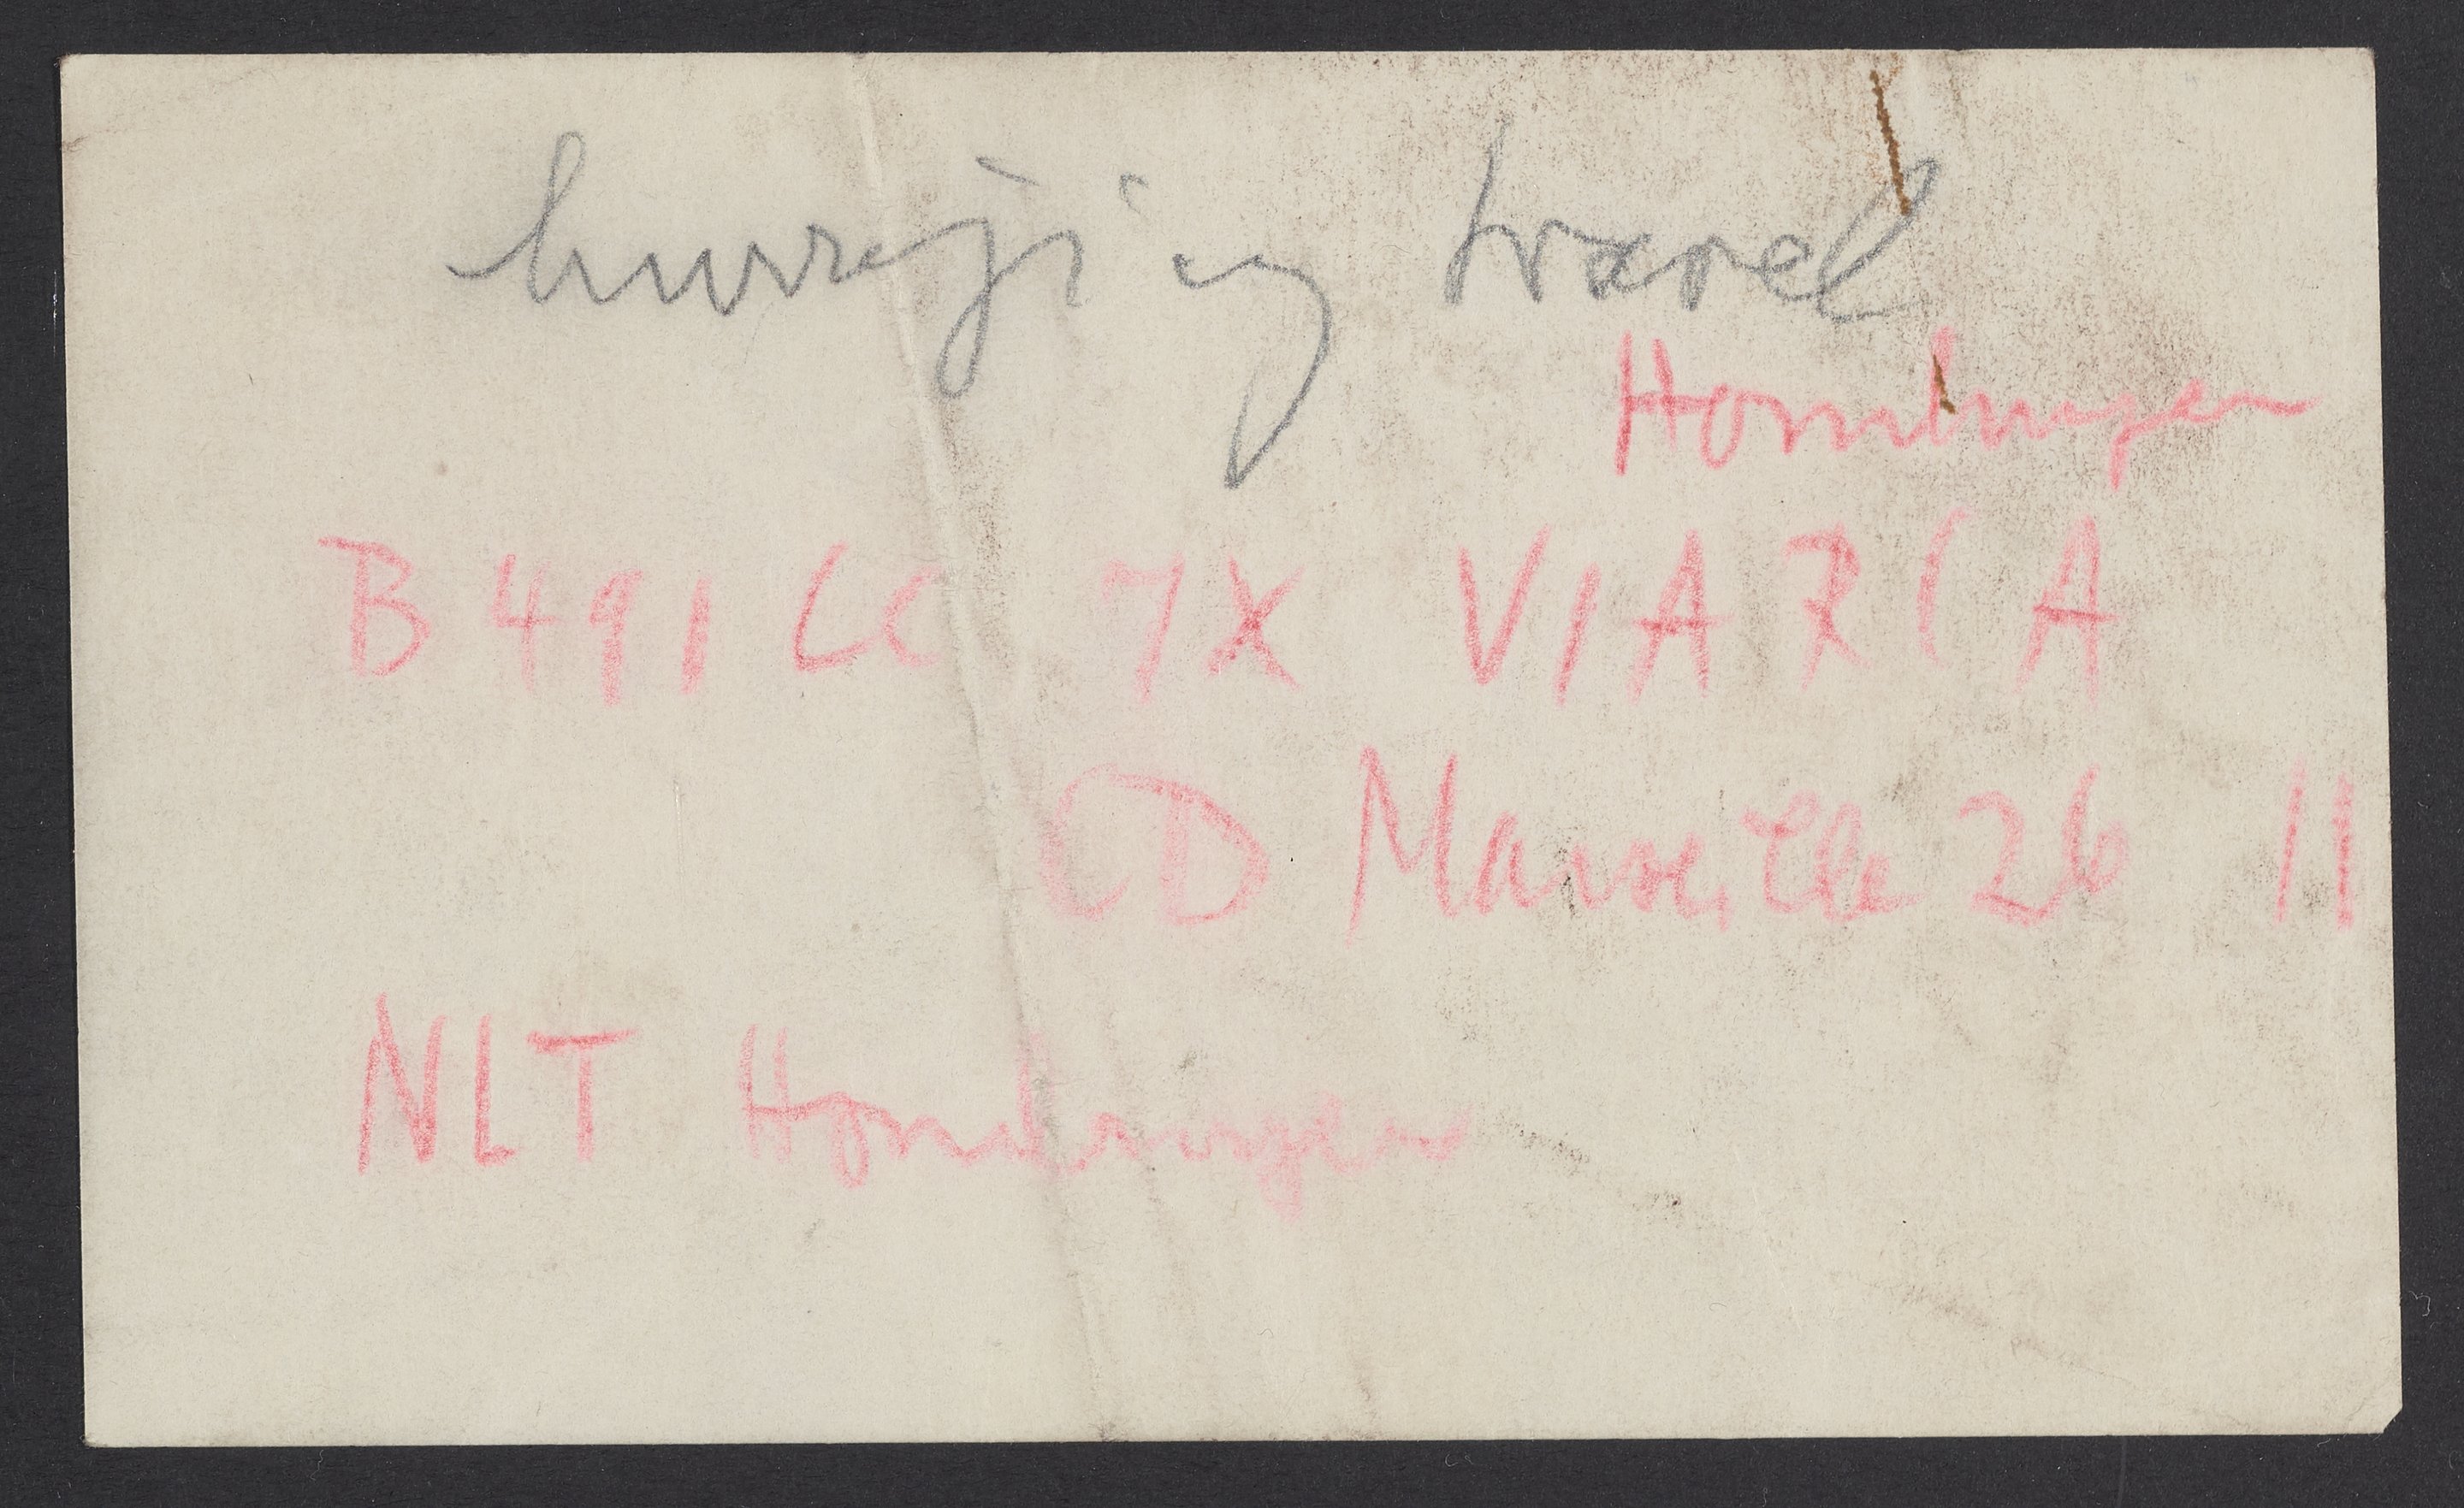 hurrying travel
Homburger
B 491 CC 7X VIA RCA
CD Marseille 26 11
NLT Homburger